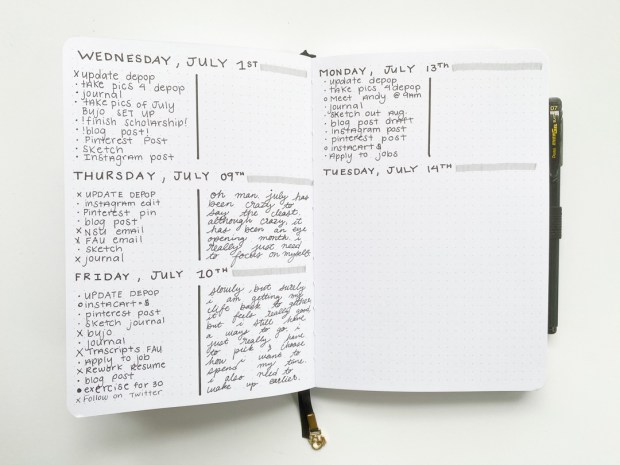 WEDNESDAY, JULY 1ST
x update depop
· take pics 4 depop
· journal
· take pics of July
Bujo SET UP
· !finish scholarship!
· !blog post!
· Pinterest Post
· Sketch
· Instagram post
THURSDAY, JULY 09TH
x UPDATE DEPOP
· instagram edit
· Pinterest pin
· blog post
x NSU email
x FAU email
· sketch
x journal
oh man, july has
been crazy to
say the least.
although crazy, it
has been an eye
opening month. i
really just need
to focus on myself.
FRIDAY, JULY 10TH
· UPDATE DEPOP
o instacart = $
· pinterest post
· sketch journal
x bujo
· journal
x Trascripts FAU
· Apply to job
x Rework Resume
· blog post
• exercise for 30
x Follow on Twitter
slowly, but surely
i am getting my
life back to gether
it feels really good
but i still have
a ways to go. i
just really have
to pick & choose
how i want to
spend my time.
i also need to
wake up earlier.
MONDAY, JULY 13TH
· update depop
· take pics 4 depop
o Meet Andy @ 9am
· journal
· sketch out Aug.
· blog post draft
· instagram post
· pinterest post
o instacart $
· Apply to jobs
TUESDAY, JULY 14TH
07